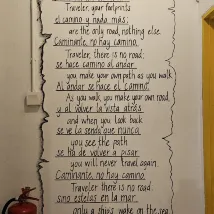 Traveler, your footprints
el camino y nada más;
are the only road, nothing else.
Caminante, no hay camino,
Traveler, there is no road;
se hace camino al andar.
you make your own path as you walk.
Al andar se hace el camino,
As you walk, you make your own road,
y al volver la vista atrás
and when you look back
se ve la senda que nunca
you see the path
se ha de volver a pisar.
you will never travel again.
Caminante, no hay camino
Traveler, there is no road
sino estelas en la mar.
only a ship's wake on the sea.